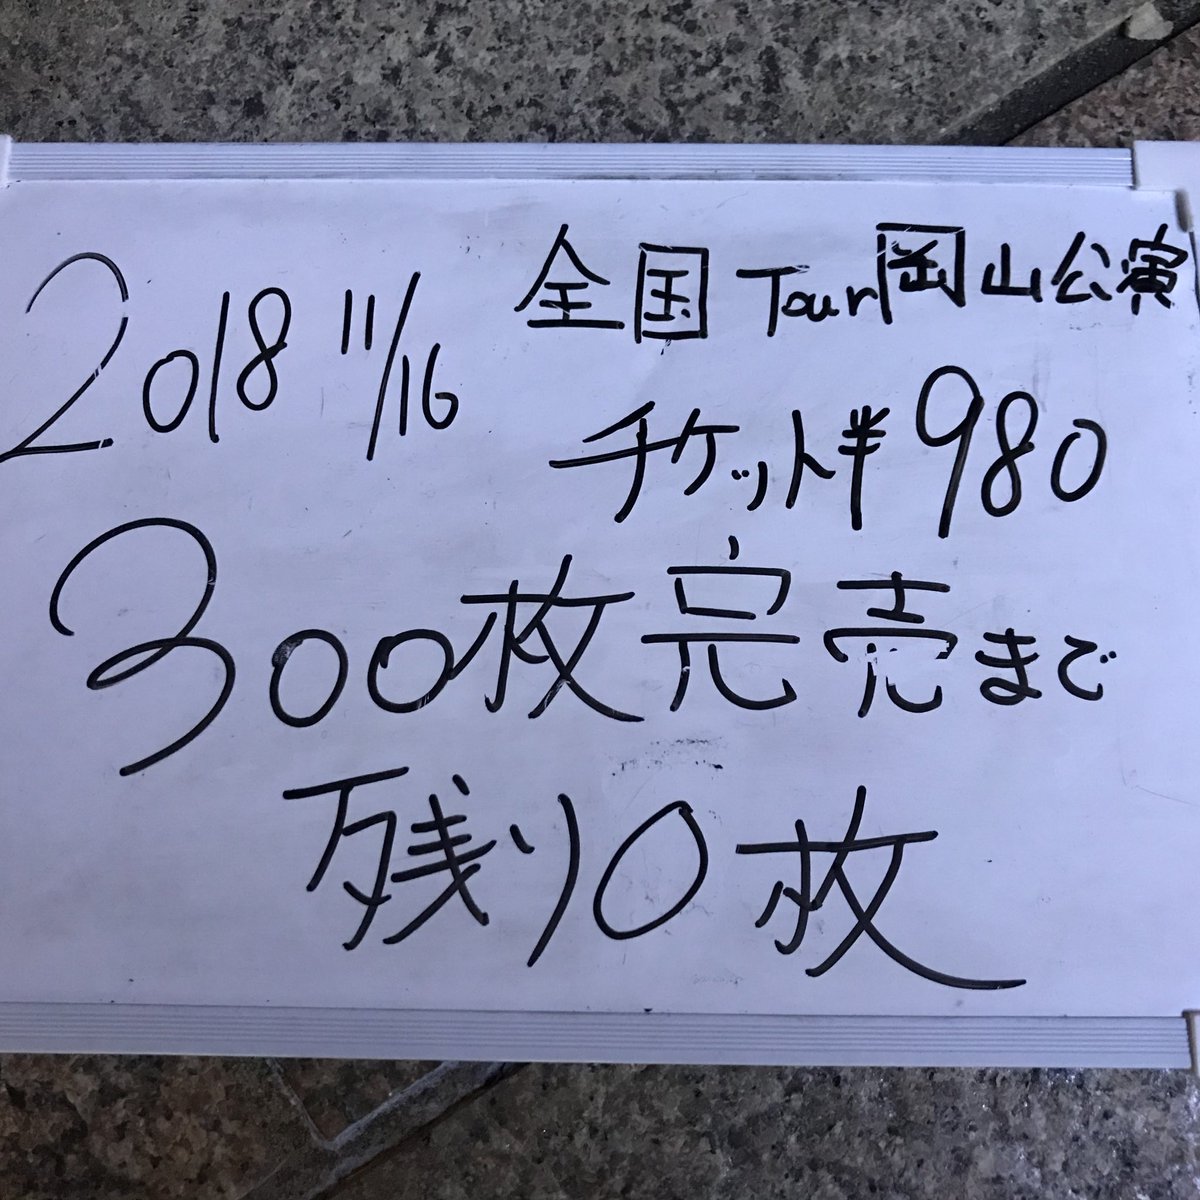 2018 11/16
全国Tour岡山公演
チケット¥980
300枚完売まで
残り0枚